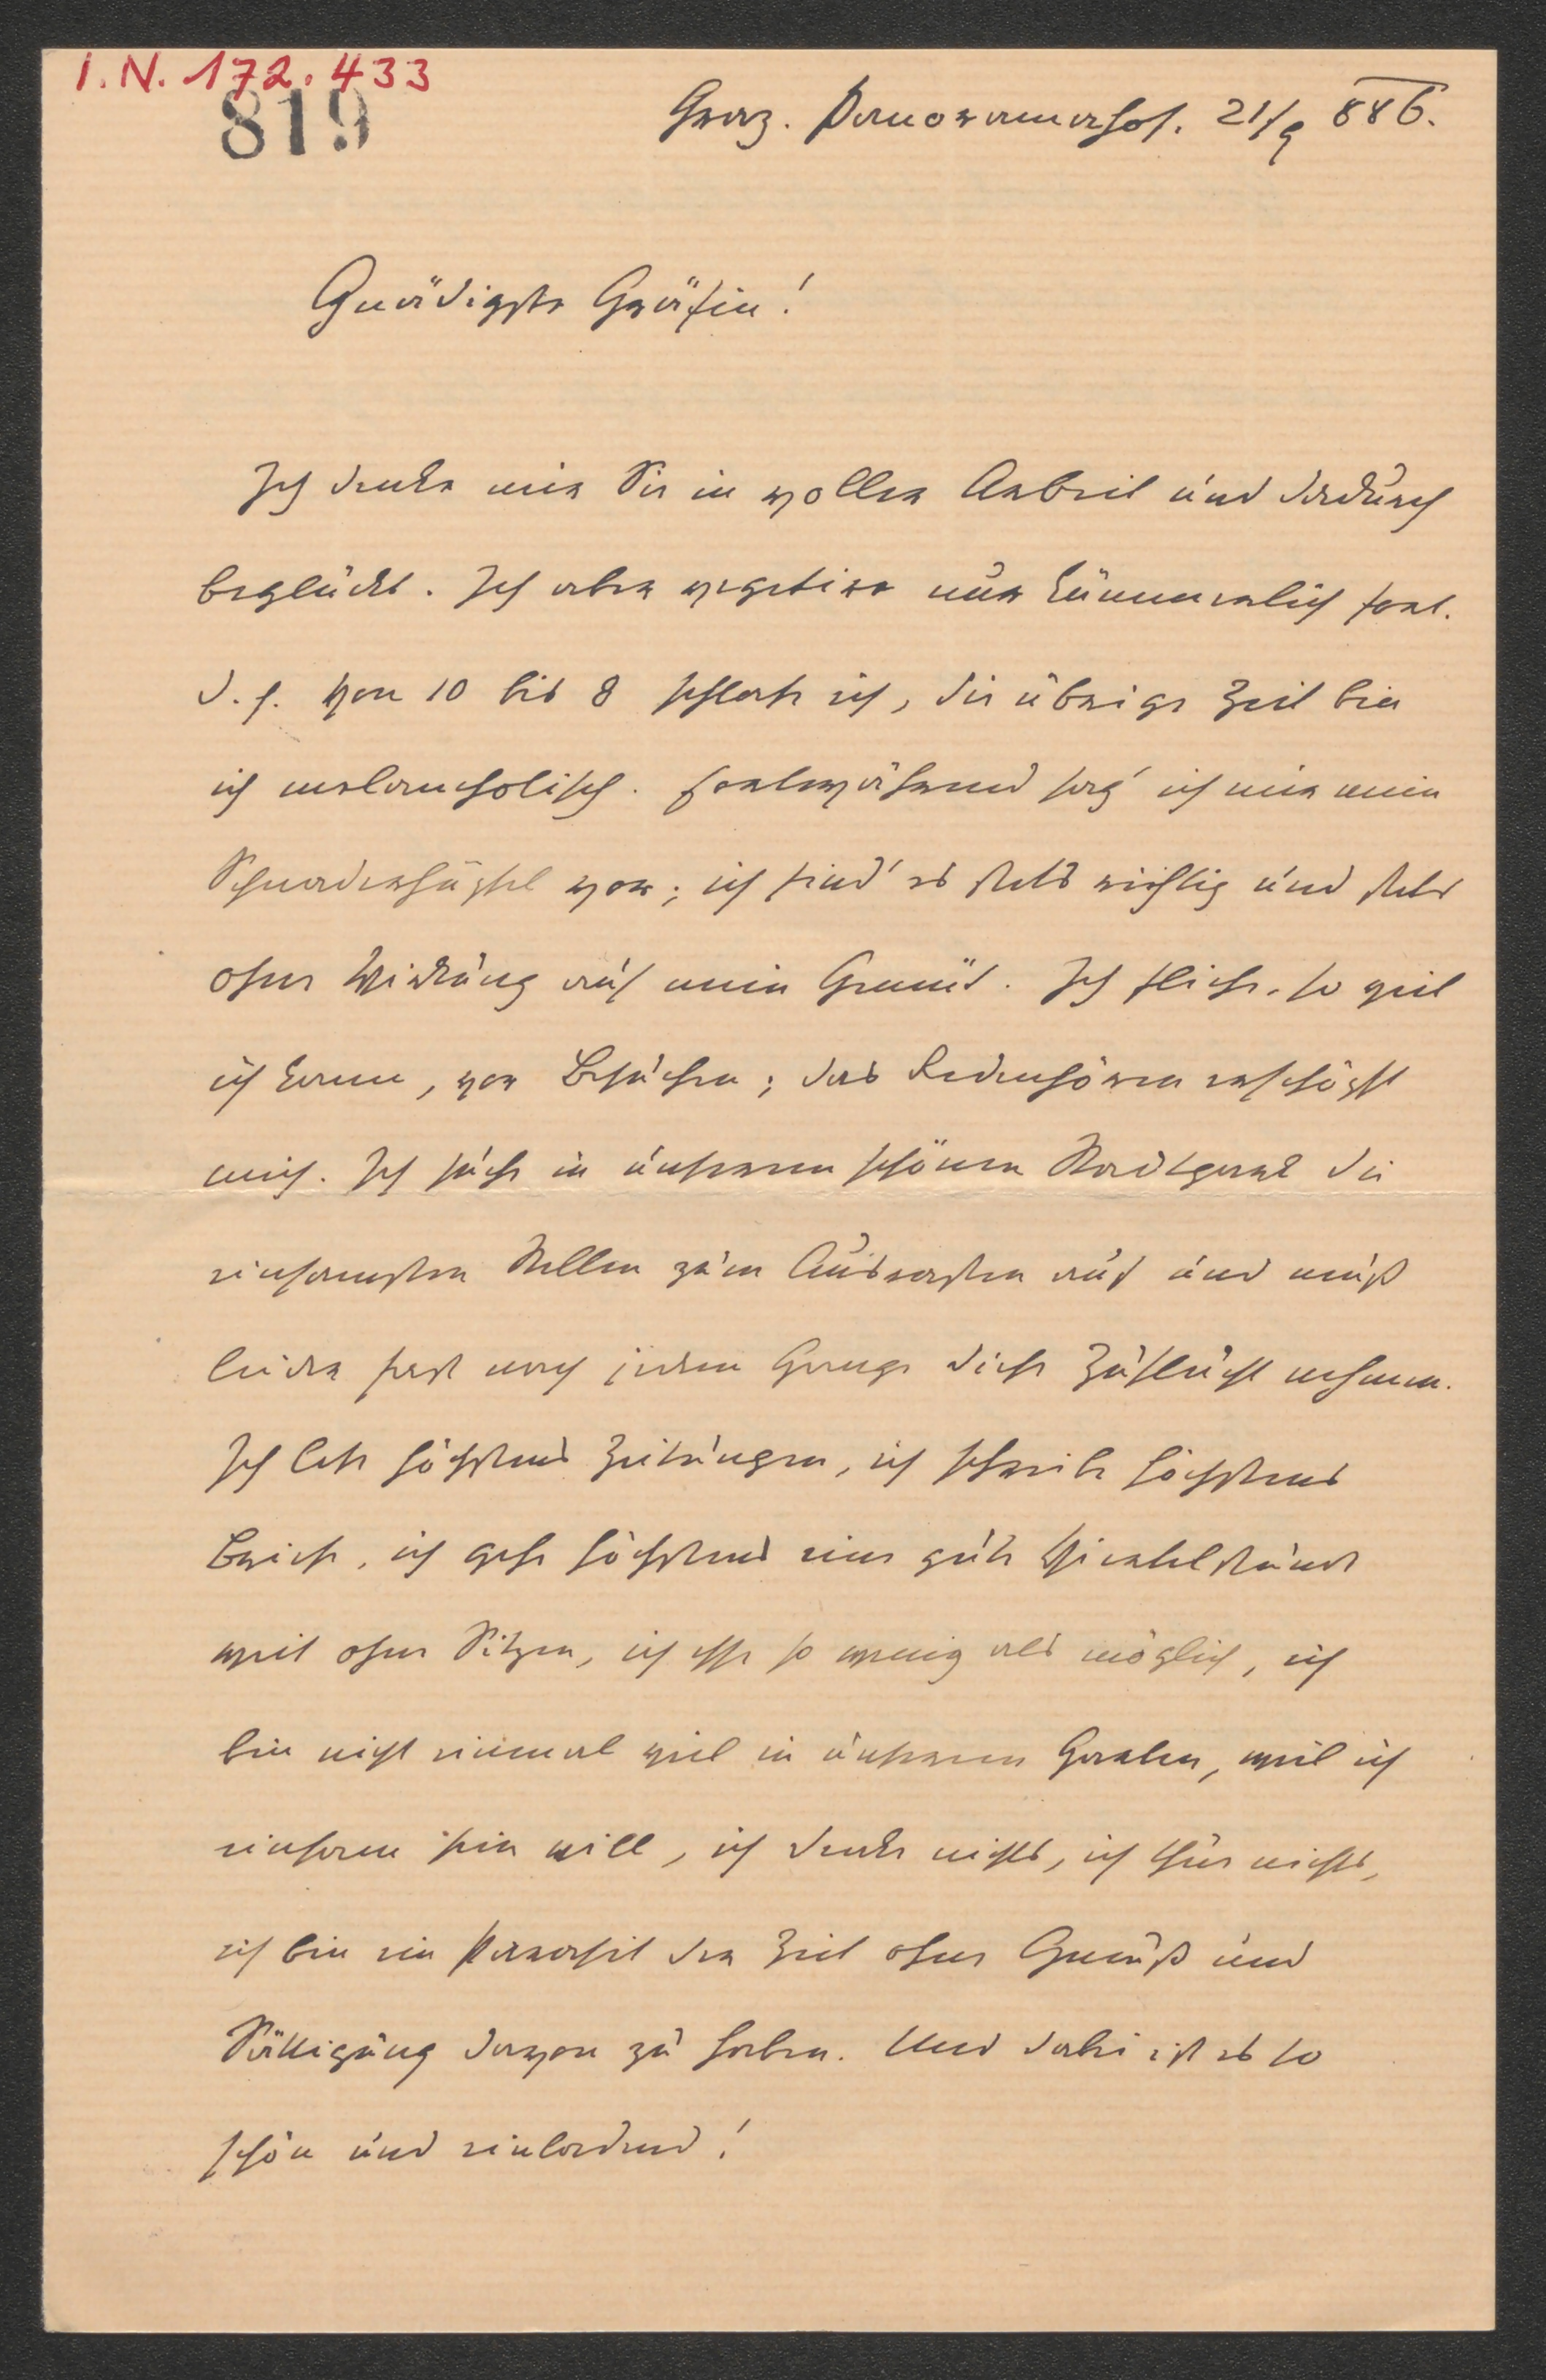 I.N. 172.433
819
Graz. Panoramahof. 21/9 886.
Gnädigste Gräfin!
Ich denke mir Sie in voller Arbeit und dadurch
beglückt. Ich aber vegetire nur kümmerlich fort.
d. h. von 10 bis 8 schlafe ich, die übrige Zeit bin
ich melancholisch. Fortwährend sag' ich mir mein
Schnaderhüpfel vor; ich find' es stets richtig und stets
ohne Wirkung auf mein Gemüt. Ich fliehe, so viel
ich kann, vor Besuchen; das Redenhören erschöpft
mich. Ich suche in unserem schönen Stadtpark die
einsamsten Stellen zum Ausrasten auf und muß
leider fast nach jedem Gange diese Zuflucht nehmen.
Ich lese höchstens Zeitungen, ich schreibe höchstens
Briefe, ich gehe höchstens eine gute Viertelstunde
weit ohne Sitzen, ich esse so wenig als möglich, ich
bin nicht einmal viel in unserem Garten, weil ich
einsam sein will, ich denke nichts, ich thue nichts,
ich bin ein Parasit der Zeit ohne Genuß und
Sättigung davon zu haben. Und dabei ist es so
schön und einladend!